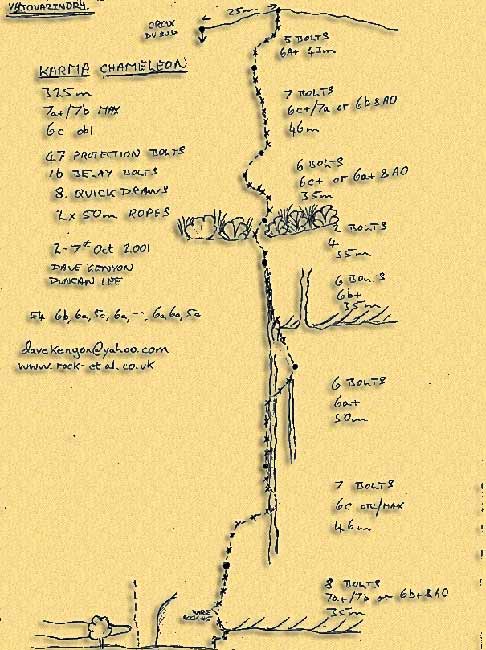 VATOVARINDRY.
CROIX
DU SUD
25m
KARMA CHAMELEON
325m
7a+/7b MAX
6c obl
47 PROTECTION BOLTS
16 BELAY BOLTS
8 QUICK DRAWS
2 x 50m ROPES
2-7th Oct 2001
DAVE KENYON
DUNCAN LEE
davekenyon@yahoo.com
www.rock-etal.co.uk
5 BOLTS
6a+ 43m
7 BOLTS
6c+/7a or 6b & A0
46m
6 BOLTS
6c+ or 6a+ & A0
35m
2 BOLTS
4
55m
6 BOLTS
6b+
35m
6 BOLTS
6a+
50m
7 BOLTS
6c OBL/MAX
46m
8 BOLTS
7a+/7b or 6b+ & A0
35m